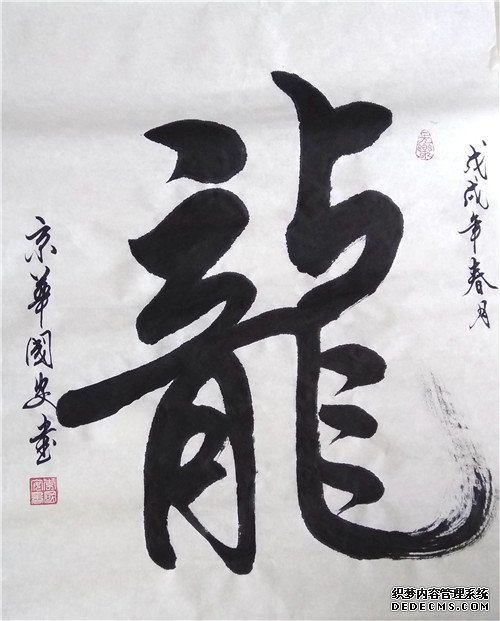 戊戌年春月
龍
京華國安書
织梦内容管理系统
DEDECMS.COM